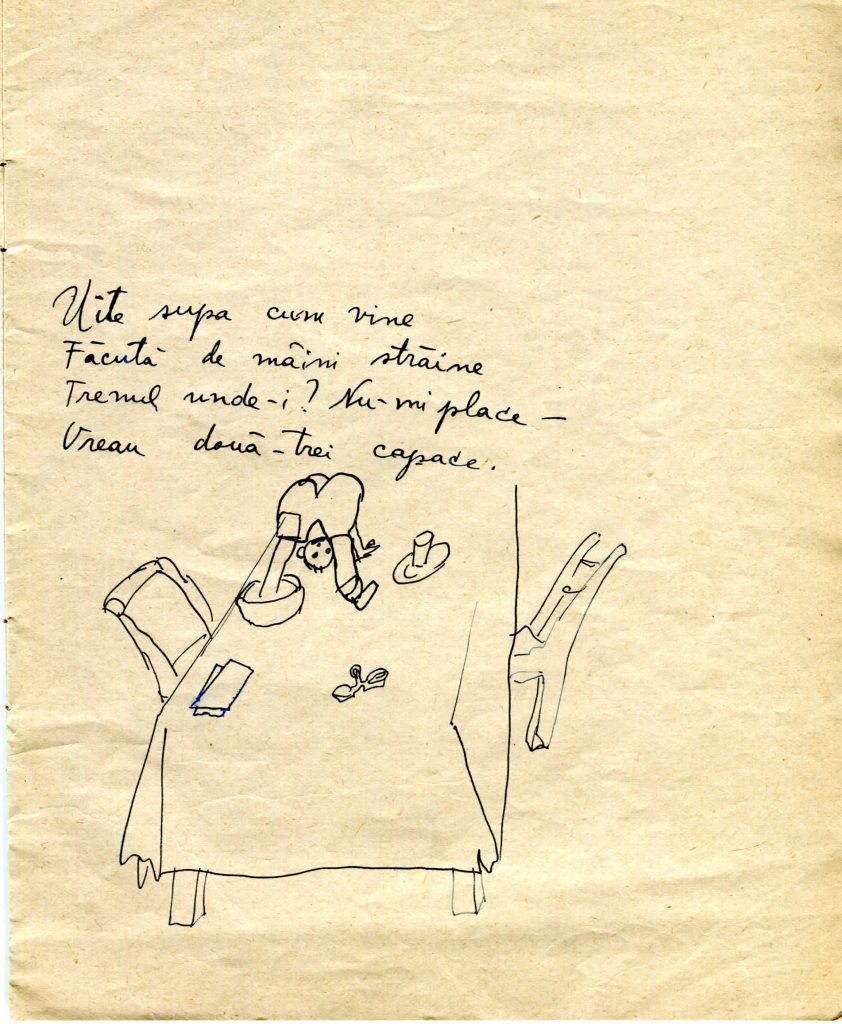 Uite supa cum vine
Făcută de mâini străine
Trenul unde-i? Nu-mi place –
Vreau două-trei capace.